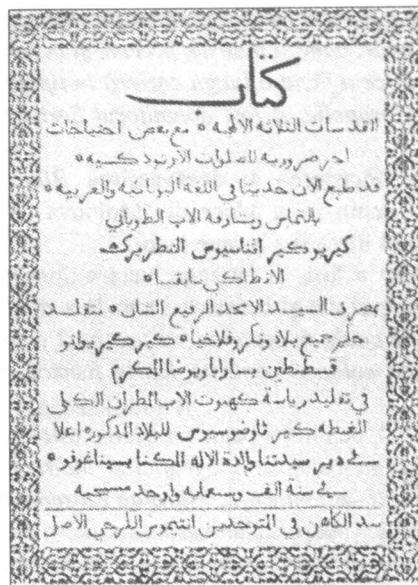 كتاب
القداسات الثلاثة الالهية * مع بعض احتياجات
اخر ضرورية للصلوات الارثودكسيه *
قد طبع الان حديثا في اللغة اليونانية والعربية *
بالتماس ومشارفة الاب الطوباني
كيريو كير اثناسيوس البطريرك
الانطاكي سابقا *
بمصرف السيد الامجد الرفيع الشان * متقلد
حكم جميع بلاد ونكروفلاخيا * كير كير يوانو
قسطنطين بسارابا ويوضا المكرم
في تقليد رياسة كهنوت الاب المطران الكلي
الغبطه كير ثاوضوسيوس للبلاد المذكوره اعلا
في دير سيدتنا والدة الاله المكنا بسيناغوفو *
في سنة الف وسبعمايه واوحد مسيحيه
بيد الكاهن في المتوحدين انتيموس الكرجي الاصل